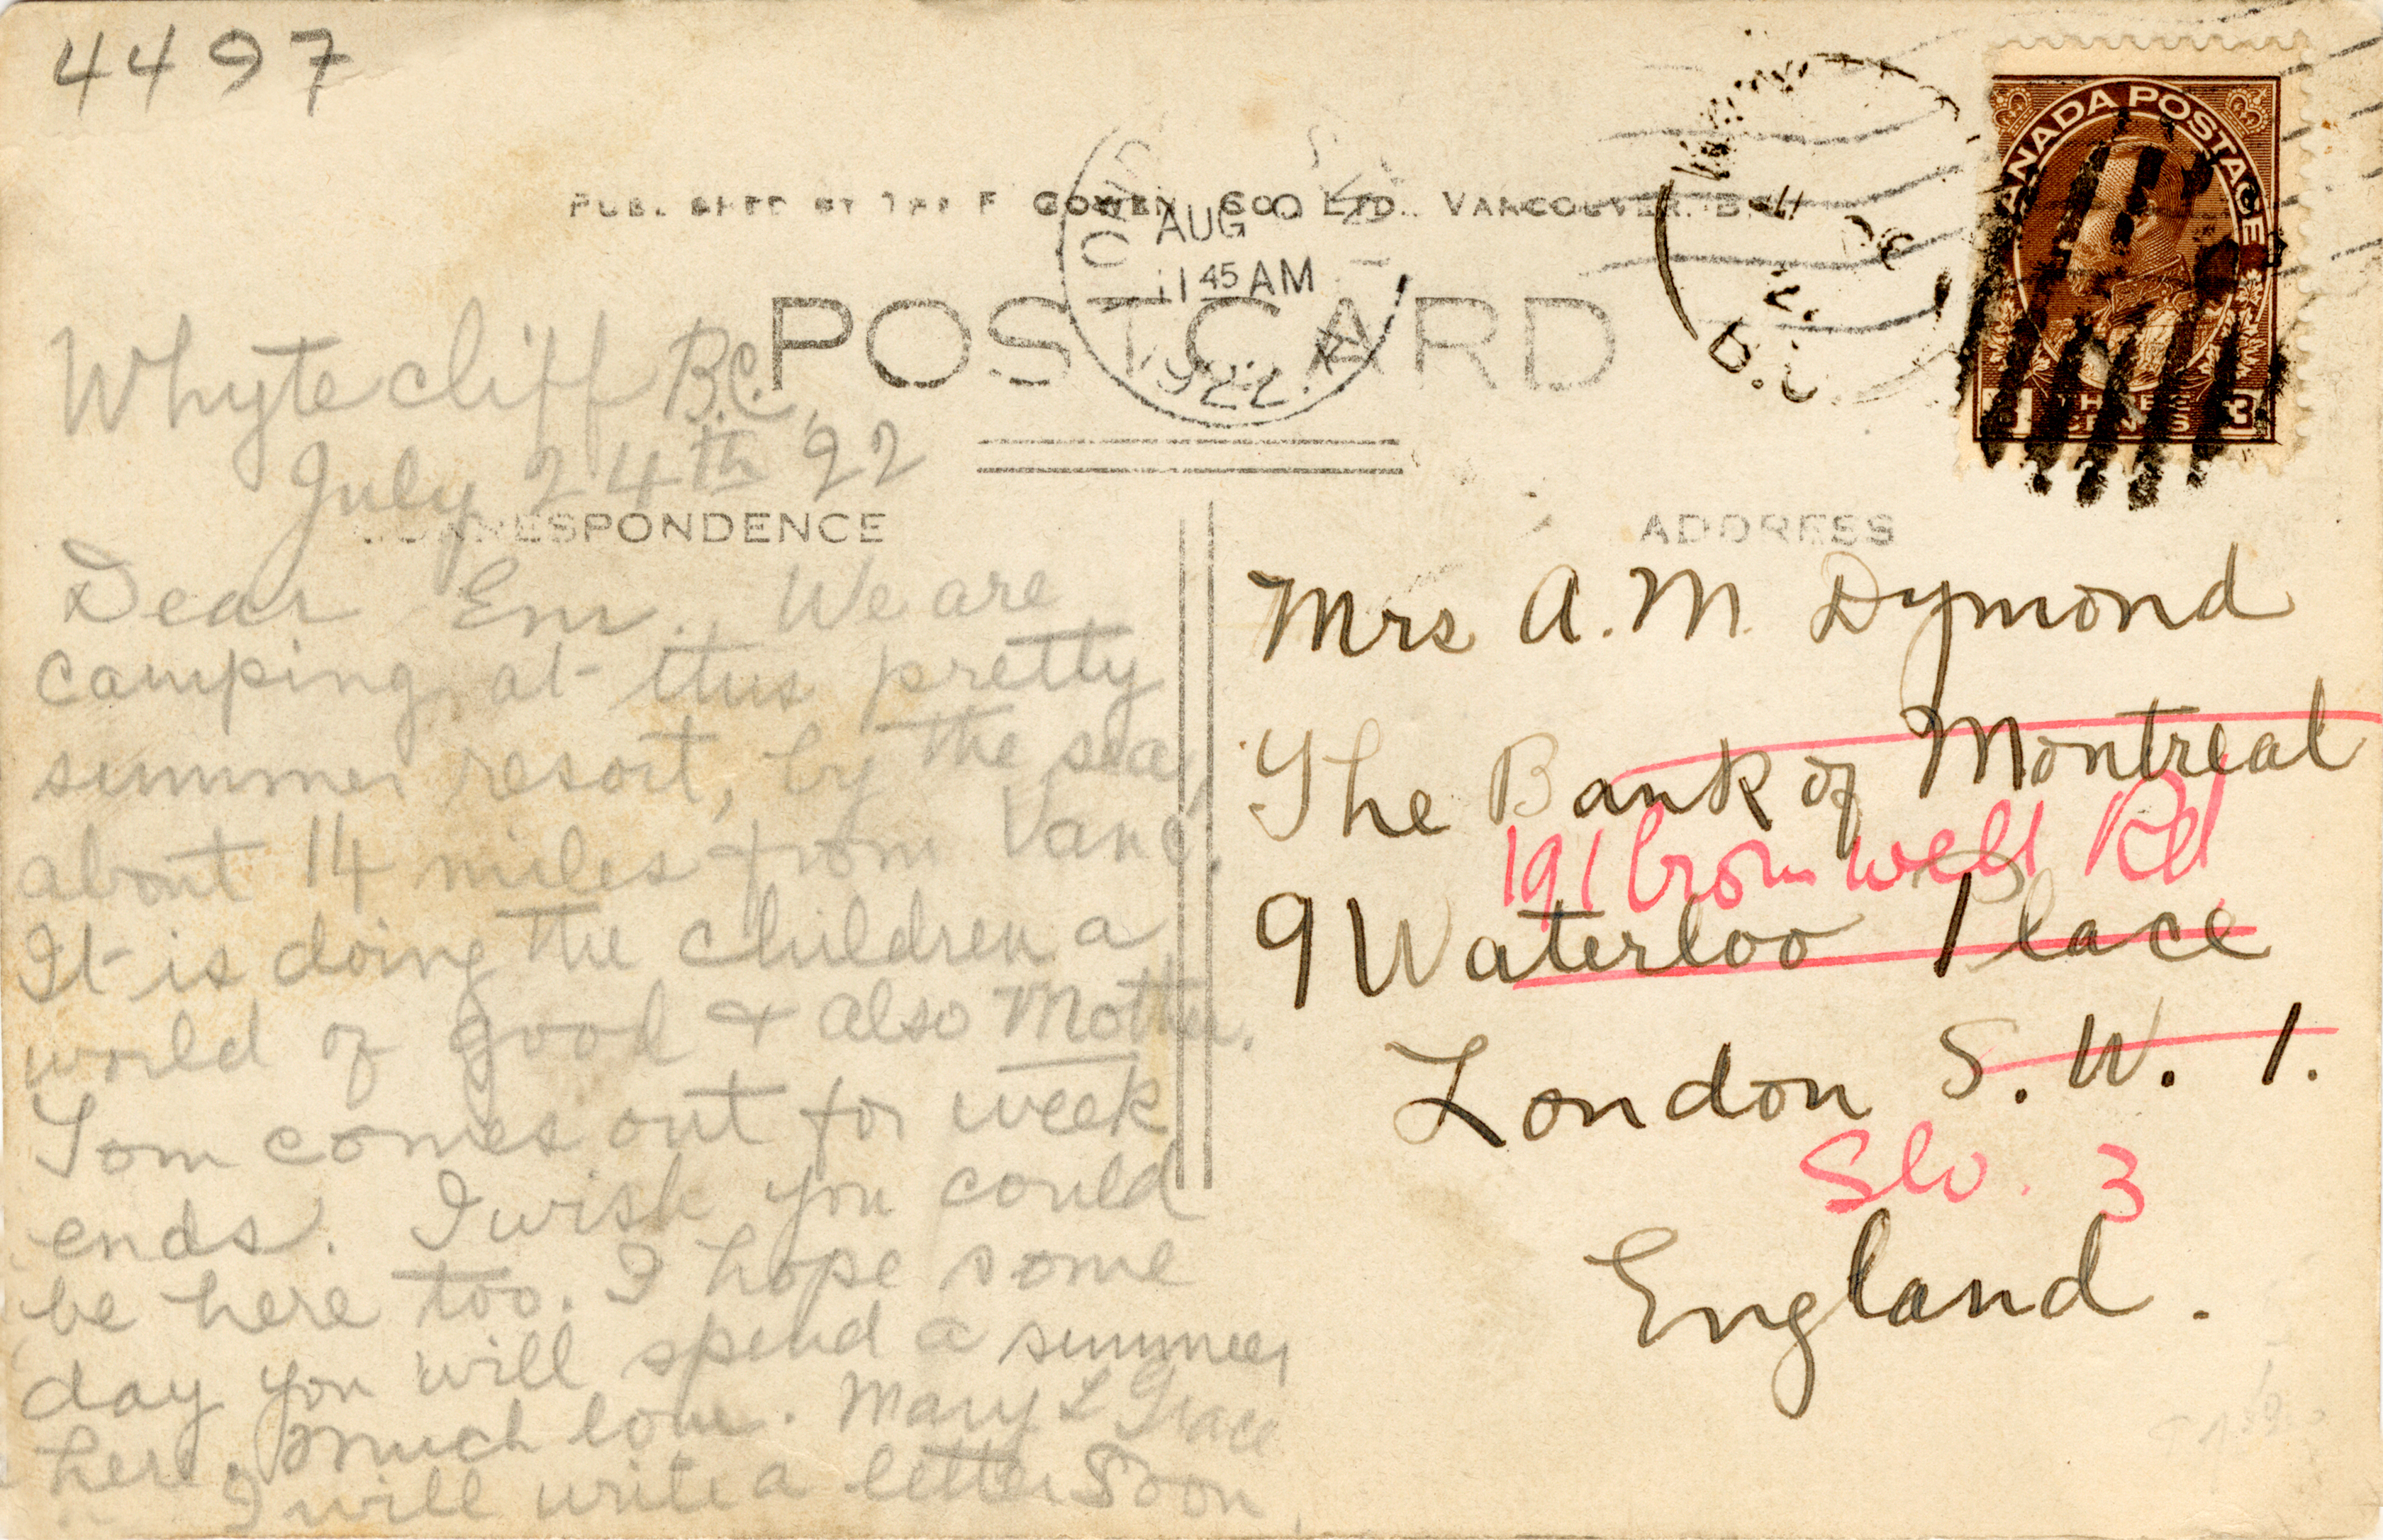 4497
PUBLISHED BY THE F. GOWEN CO. LTD. VANCOUVER. B.C.
AUG
11 45 AM
1922
POSTCARD
CANADA POSTAGE
3 THREE CENTS 3
B.C.
Whytecliff B.C.,
July 24th 22
CORRESPONDENCE
Dear Em. We are
camping at this pretty
summer resort, by the sea,
about 14 miles from Vanc.
It is doing the children a
world of good & also Mother.
Tom comes out for week
ends. I wish you could
be here too. I hope some
day you will spend a summer
here. Much love. Mary L Grace
I will write a letter soon
ADDRESS
Mrs A. M. Dymond
The Bank of Montreal
191 Cromwell Rd
9 Waterloo Place
London S. W. 1.
SW. 3
England.